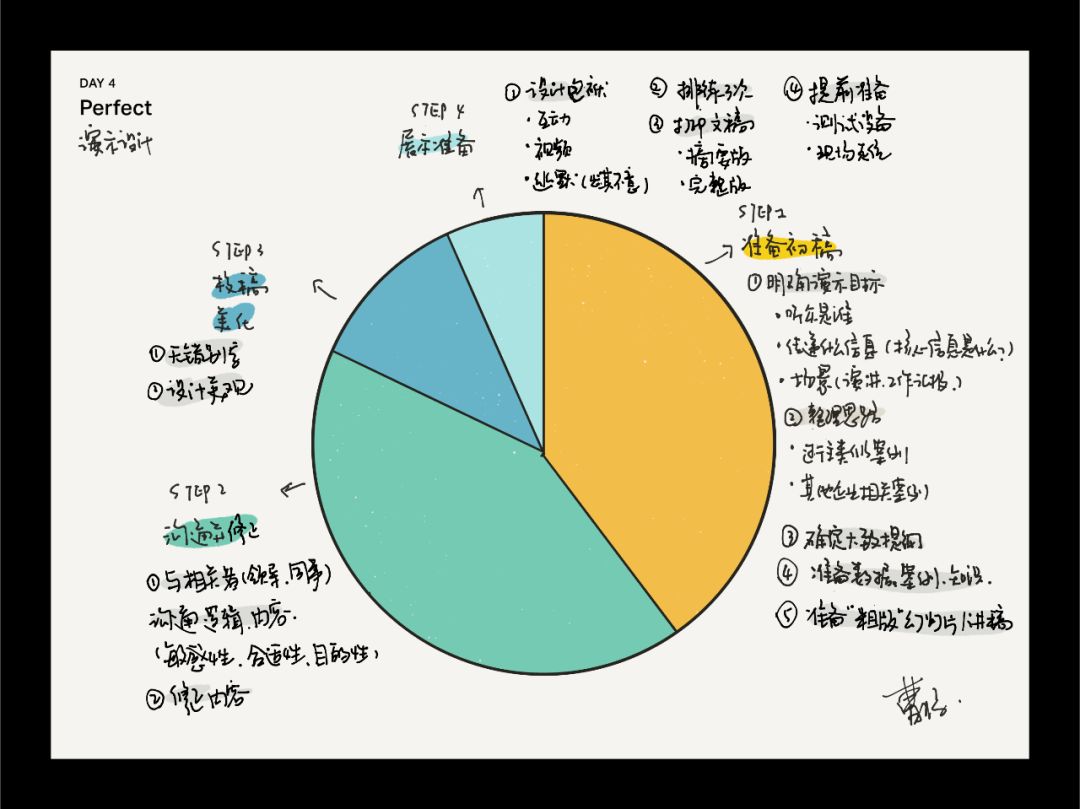 DAY 4
Perfect
演示设计
STEP 1
准备初稿
①明确演示目标
·听众是谁
·传递什么信息(核心信息是什么?)
·场景(演讲、工作汇报)
②整理思路
·过往类似案例
·其他企业相关案例
③确定大致提纲
④准备数据、案例、知识.
⑤准备"粗版"幻灯片/讲稿
STEP 2
沟通和修正
①与相关者(领导、同事)
沟通逻辑、内容.
(敏感性、合适性、目的性)
②修正内容
STEP 3
校稿
美化
①无错别字
②设计美观
STEP 4
展示准备
①设计包袱
·互动
·视频
·幽默(出其不意)
②排练3次
③打印文稿
·摘要版
·完整版
④提前准备
·测试设备
·现场